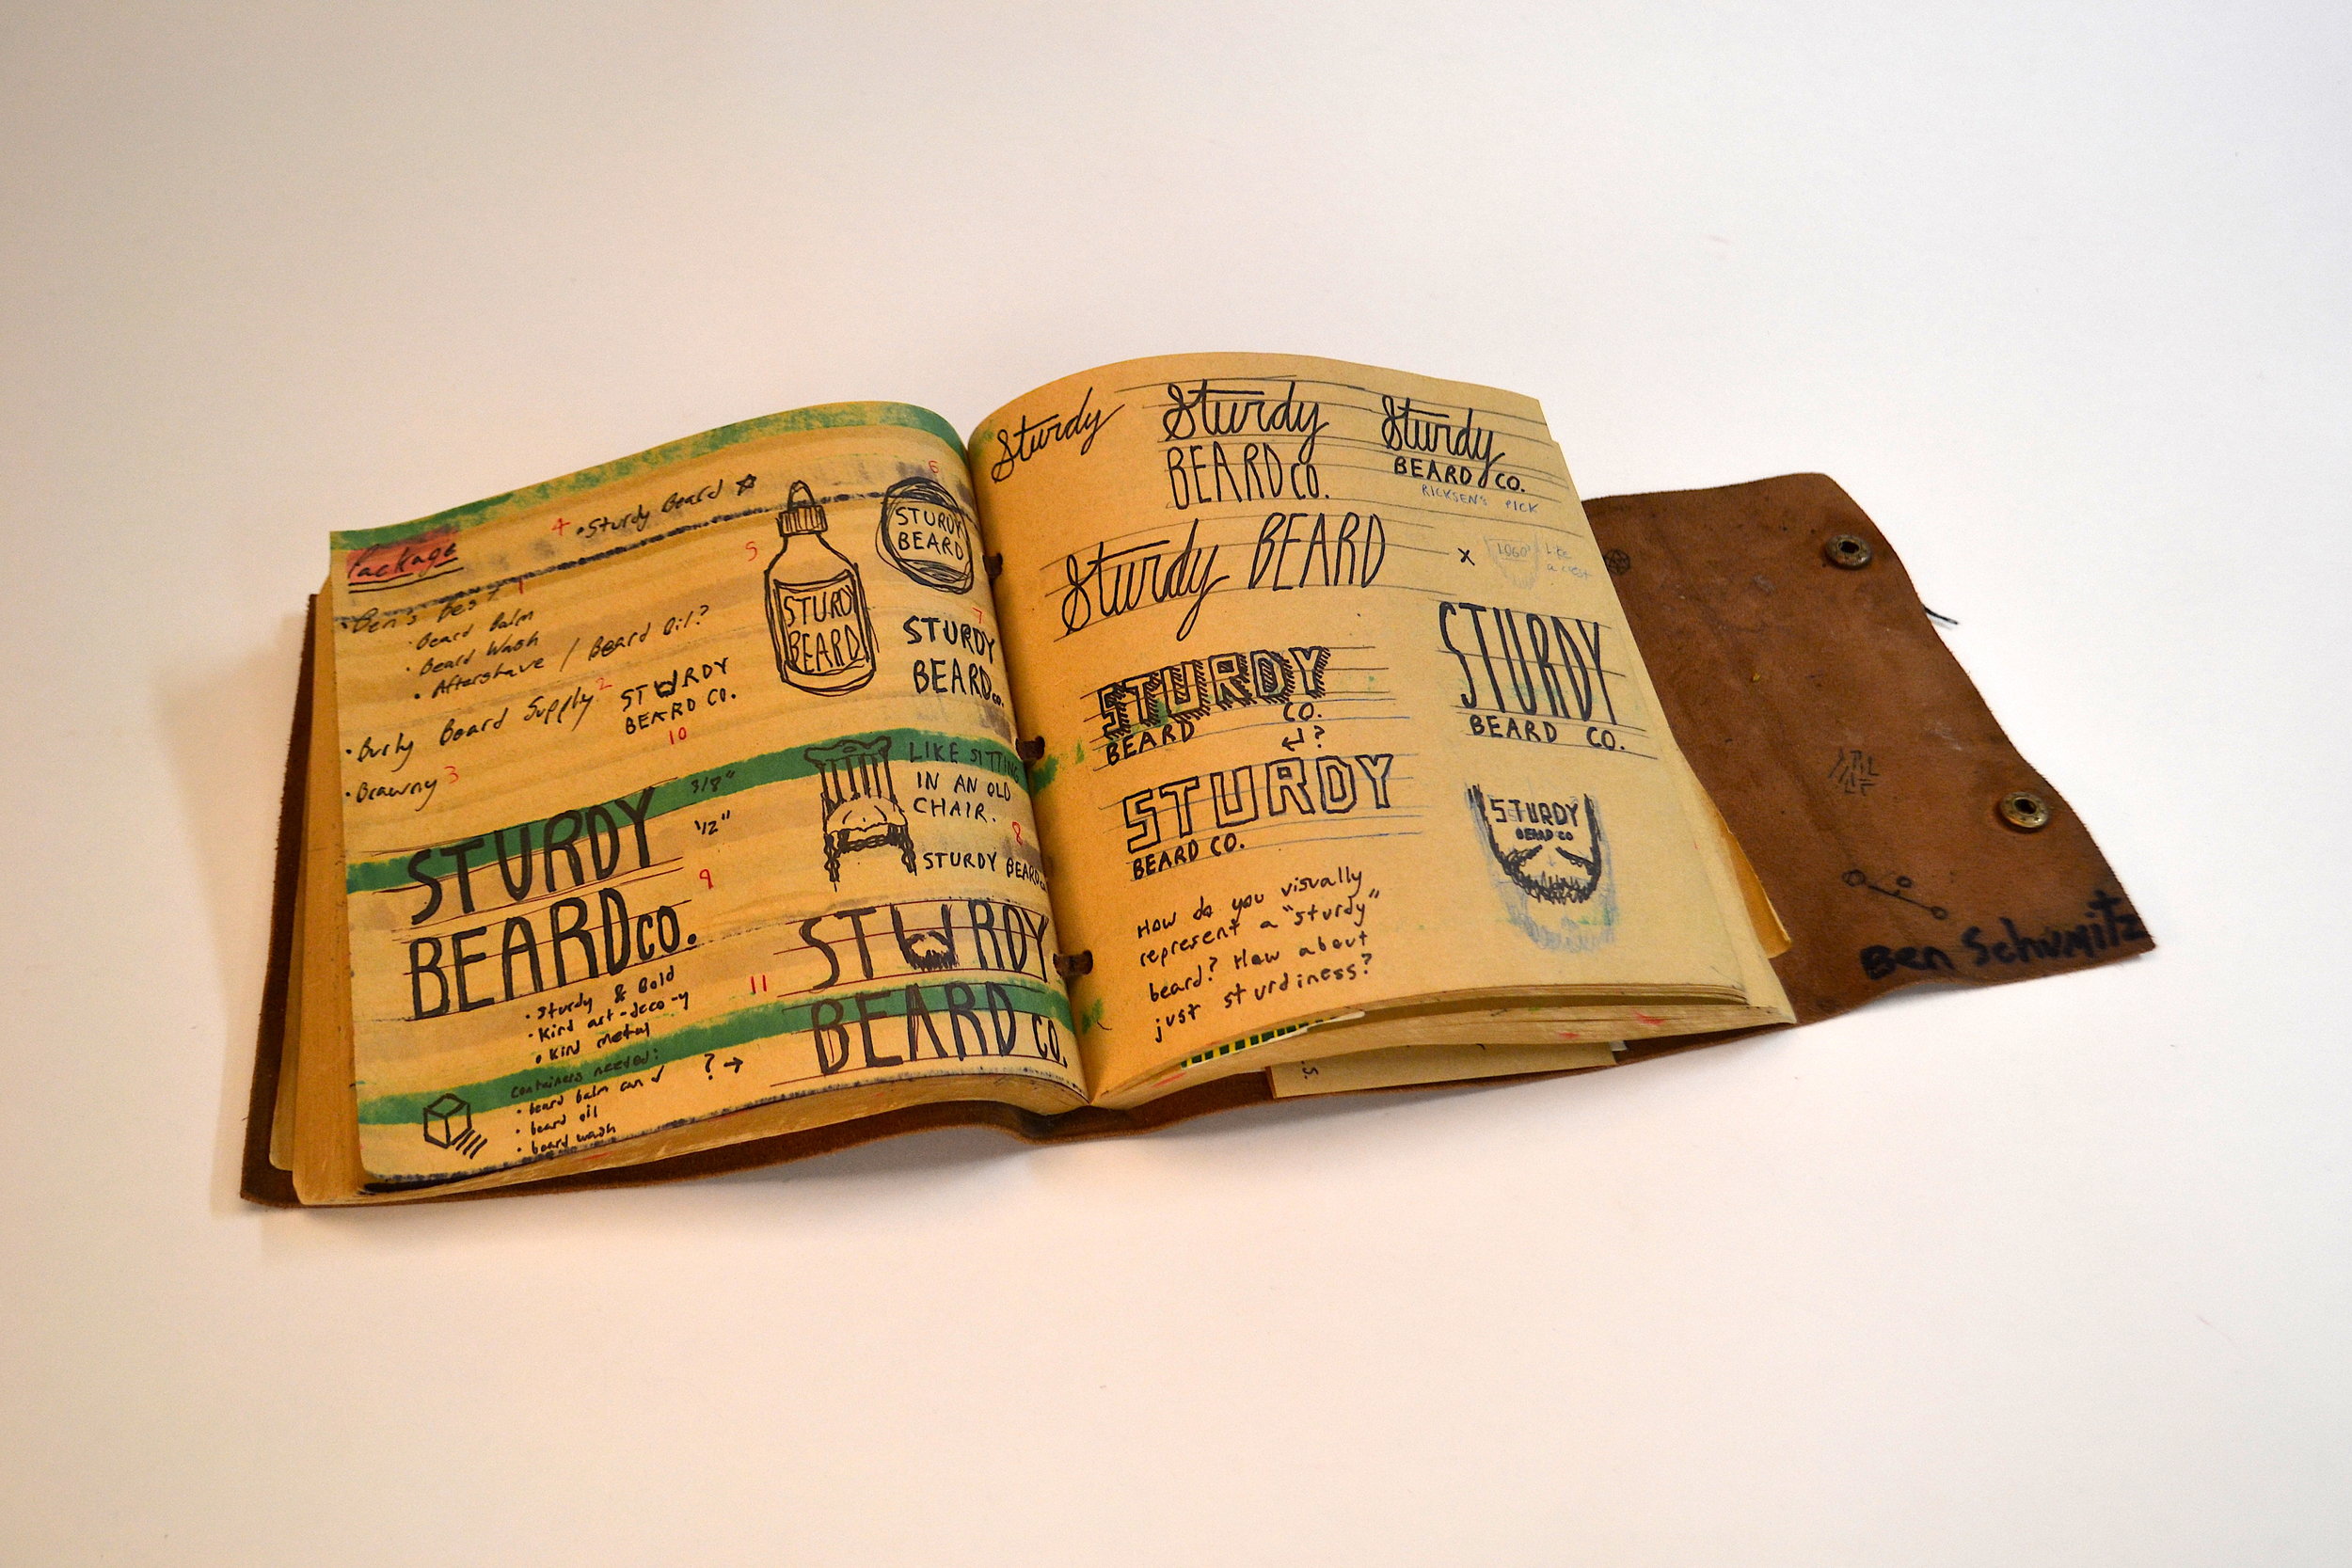 Package
4 • Sturdy Beard
• Ben's Best 1
• Beard Balm
• Beard Wash
• Aftershave / Beard Oil?
• Burly Beard Supply 2
• Brawny 3
STURDY
BEARD CO.
10
5
STURDY
BEARD
6
STURDY
BEARD
7
STURDY
BEARD co.
LIKE SITTING
IN AN OLD
CHAIR.
8
STURDY BEARD
3/8"
1/2"
STURDY
BEARD co.
9
• Sturdy & Bold
• Kind art-deco-y
• Kind metal
containers needed:
• beard balm can ✓
• beard oil
• beard wash
? →
11
STURDY
BEARD CO.
Sturdy
Sturdy
BEARD CO.
Sturdy
BEARD CO.
RICKSEN'S PICK
Sturdy BEARD
x
LOGO
Like
a crest
STURDY
CO.
BEARD
?
STURDY
BEARD CO.
STURDY
BEARD CO.
STURDY
BEARD CO
How do you visually
represent a "sturdy"
beard? How about
just sturdiness?
Ben Schumitz